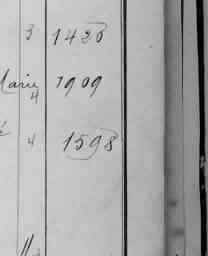 3 1436
Marie 4 1909
4 1598